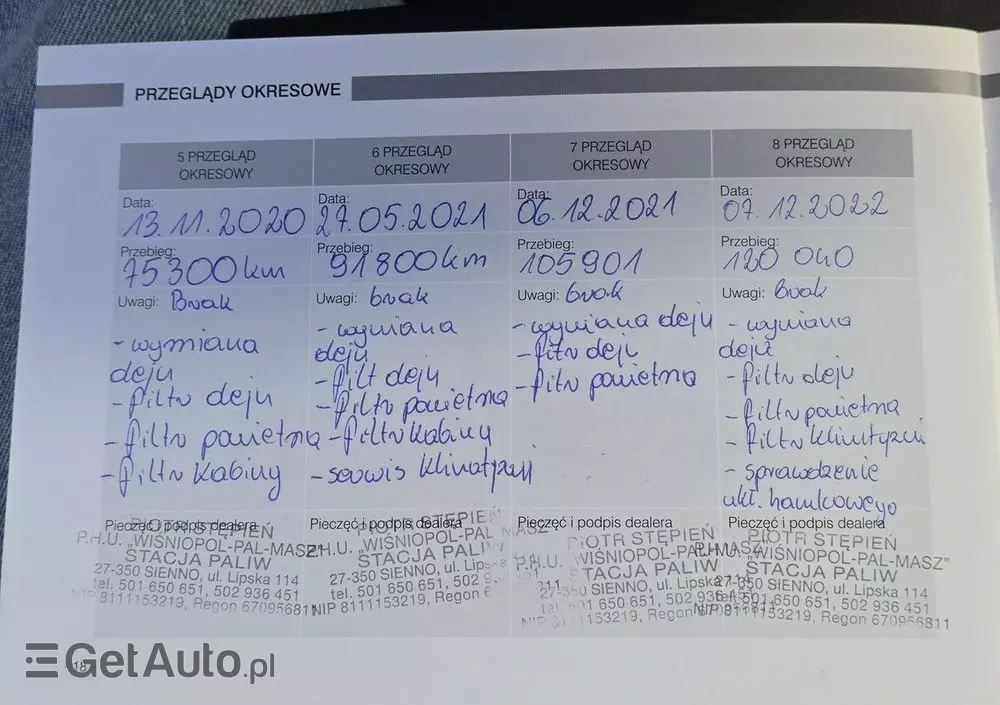 PRZEGLĄDY OKRESOWE
5 PRZEGLĄD
OKRESOWY
Data:
13.11.2020
Przebieg:
75300 km
Uwagi: Brak
- wymiana
oleju
- filtr oleju
- filtr powietrza
- filtr kabiny
Pieczęć i podpis dealera
PIOTR STĘPIEŃ
P.H.U. „WIŚNIOPOL-PAL-MASZ"
STACJA PALIW
27-350 SIENNO, ul. Lipska 114
tel. 501 650 651, 502 936 451
NIP 8111153219, Regon 670956811
6 PRZEGLĄD
OKRESOWY
Data:
27.05.2021
Przebieg:
91800 km
Uwagi: brak
- wymiana
oleju
- filt oleju
- filtr powietrza
- filtr kabiny
- serwis klimatyzacji
Pieczęć i podpis dealera
PIOTR STĘPIEŃ
P.H.U. „WIŚNIOPOL-PAL-MASZ"
STACJA PALIW
27-350 SIENNO, ul. Lipska
tel. 501 650 651, 502 9
NIP 8111153219, Regon 6
7 PRZEGLĄD
OKRESOWY
Data:
06.12.2021
Przebieg:
105901
Uwagi: brak
- wymiana oleju
- filtr oleju
- filtr powietrza
Pieczęć i podpis dealera
PIOTR STĘPIEŃ
P.H.U. „WIŚNIOPOL-PAL-MASZ"
STACJA PALIW
27-350 SIENNO, ul. Lipska
tel. 501 650 651, 502 936 451
NIP 8111153219, Regon
8 PRZEGLĄD
OKRESOWY
Data:
07.12.2022
Przebieg:
120 040
Uwagi: Brak
- wymiana
oleju
- filtr oleju
- filtr powietrza
- filtr klimatyzacji
- sprawdzenie
ukł. hamulcowego
Pieczęć i podpis dealera
PIOTR STĘPIEŃ
P.H.U. „WIŚNIOPOL-PAL-MASZ"
STACJA PALIW
27-350 SIENNO, ul. Lipska 114
tel. 501 650 651, 502 936 451
NIP 8111153219, Regon 670956811
18
GetAuto.pl